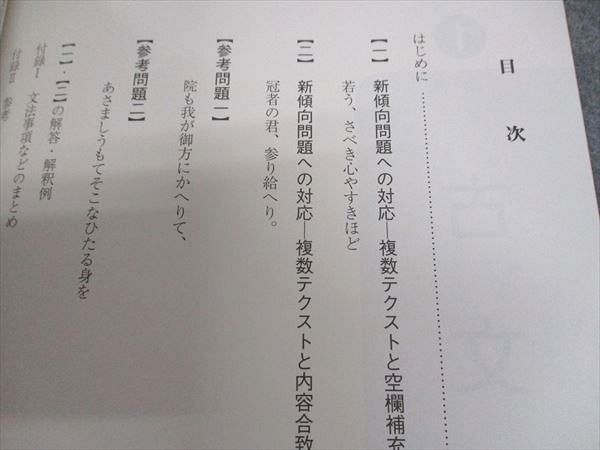 目次
はじめに……………………
【一】 新傾向問題への対応―複数テクストと空欄補充
若う、さべき心やすきほど
【二】 新傾向問題への対応―複数テクストと内容合致
冠者の君、参り給へり。
【参考問題一】
院も我が御方にかへりて、
【参考問題二】
あさましうもてそこなひたる身を
【一】・【二】の解答・解釈例
付録Ⅰ 文法事項などのまとめ
付録Ⅱ 参考
古文